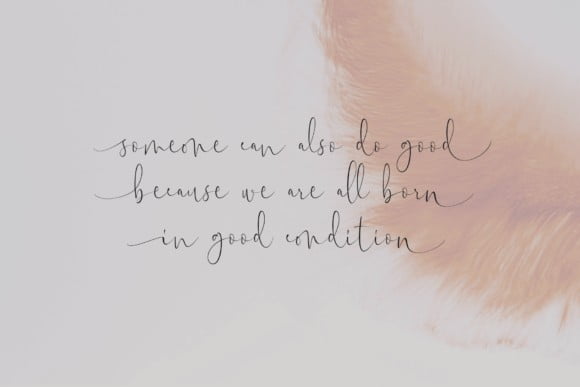 someone can also do good
because we are all born
in good condition